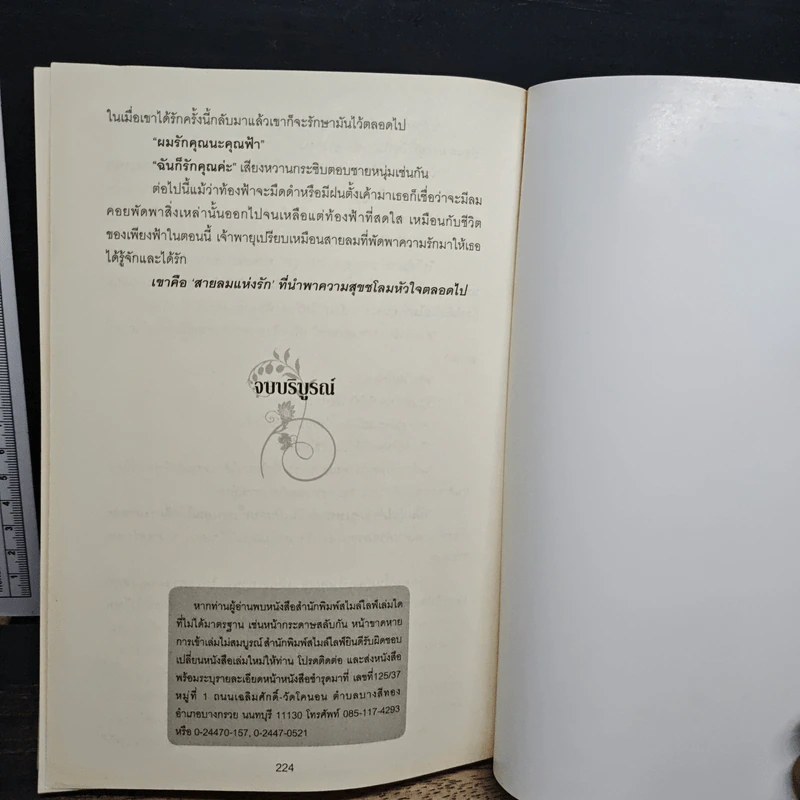 ในเมื่อเขาได้รักครั้งนี้กลับมาแล้วเขาก็จะรักษามันไว้ตลอดไป
“ผมรักคุณนะคุณฟ้า”
“ฉันก็รักคุณค่ะ” เสียงหวานกระซิบตอบชายหนุ่มเช่นกัน
ต่อไปนี้แม้ว่าท้องฟ้าจะมืดดำหรือมีฝนตั้งเค้ามาเธอก็เชื่อว่าจะมีลม
คอยพัดพาสิ่งเหล่านั้นออกไปจนเหลือแต่ท้องฟ้าที่สดใส เหมือนกับชีวิต
ของเพียงฟ้าในตอนนี้ เจ้าพายุเปรียบเหมือนสายลมที่พัดพาความรักมาให้เธอ
ได้รู้จักและได้รัก
เขาคือ ‘สายลมแห่งรัก’ ที่นำพาความสุขชโลมหัวใจตลอดไป
จบบริบูรณ์
หากท่านผู้อ่านพบหนังสือสำนักพิมพ์สไมล์ไลฟ์เล่มใด
ที่ไม่ได้มาตรฐาน เช่นหน้ากระดาษสลับกัน หน้าขาดหาย
การเข้าเล่มไม่สมบูรณ์ สำนักพิมพ์สไมล์ไลฟ์ยินดีรับผิดชอบ
เปลี่ยนหนังสือเล่มใหม่ให้ท่าน โปรดติดต่อ และส่งหนังสือ
พร้อมระบุรายละเอียดหน้าหนังสือชำรุดมาที่ เลขที่125/37
หมู่ที่ 1 ถนนเฉลิมศักดิ์-วัดโคนอน ตำบลบางสีทอง
อำเภอบางกรวย นนทบุรี 11130 โทรศัพท์ 085-117-4293
หรือ 0-24470-157, 0-2447-0521
224